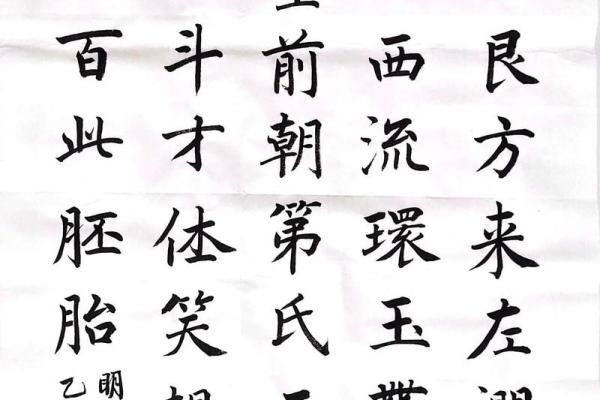 艮方来左
西流環玉
前朝第氏
斗才体笑
百此胚胎
明
乙